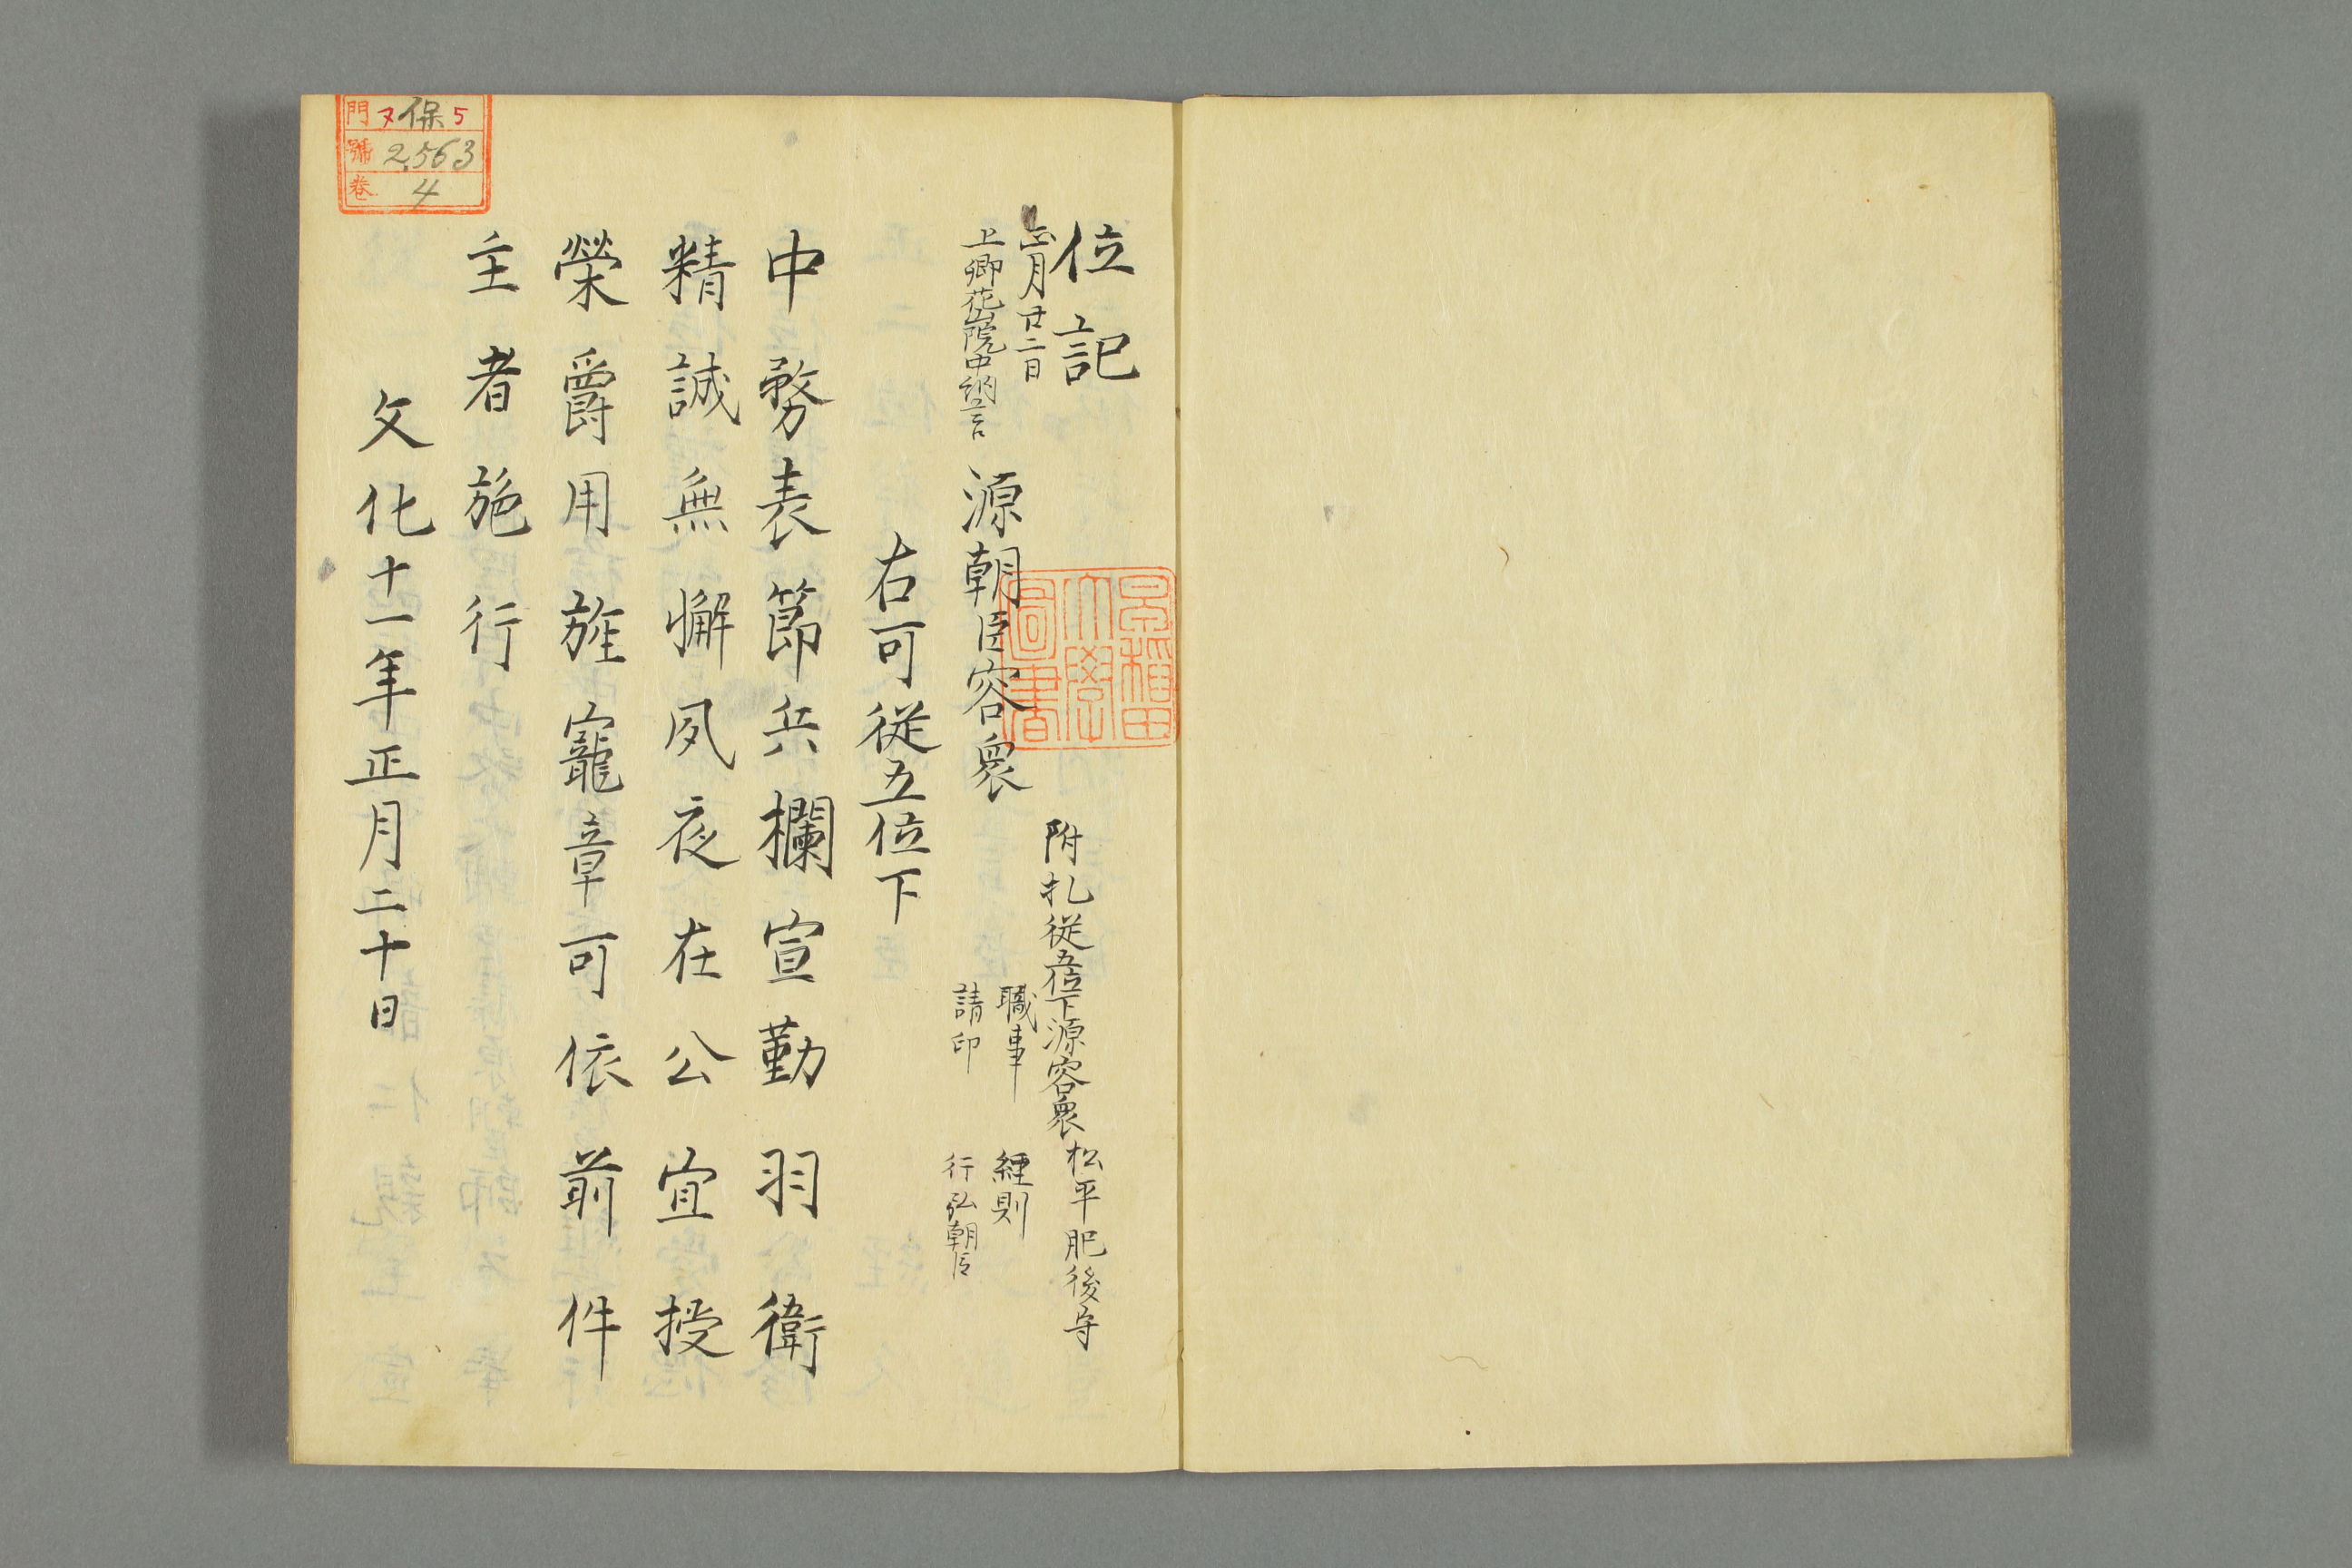 位記
附札従五位下源容衆 松平肥後守
正月廿二日
職事 經則
上卿花山院中納言
請印 行弘朝臣
源朝臣容衆
早稲田
大學
圖書
右可従五位下
中務表節兵欄宣勤羽衛
精誠無懈夙夜在公宜授
榮爵用旌寵章可依前件
主者施行
文化十一年正月二十日
門 ヌ保5
號 2563
卷 4